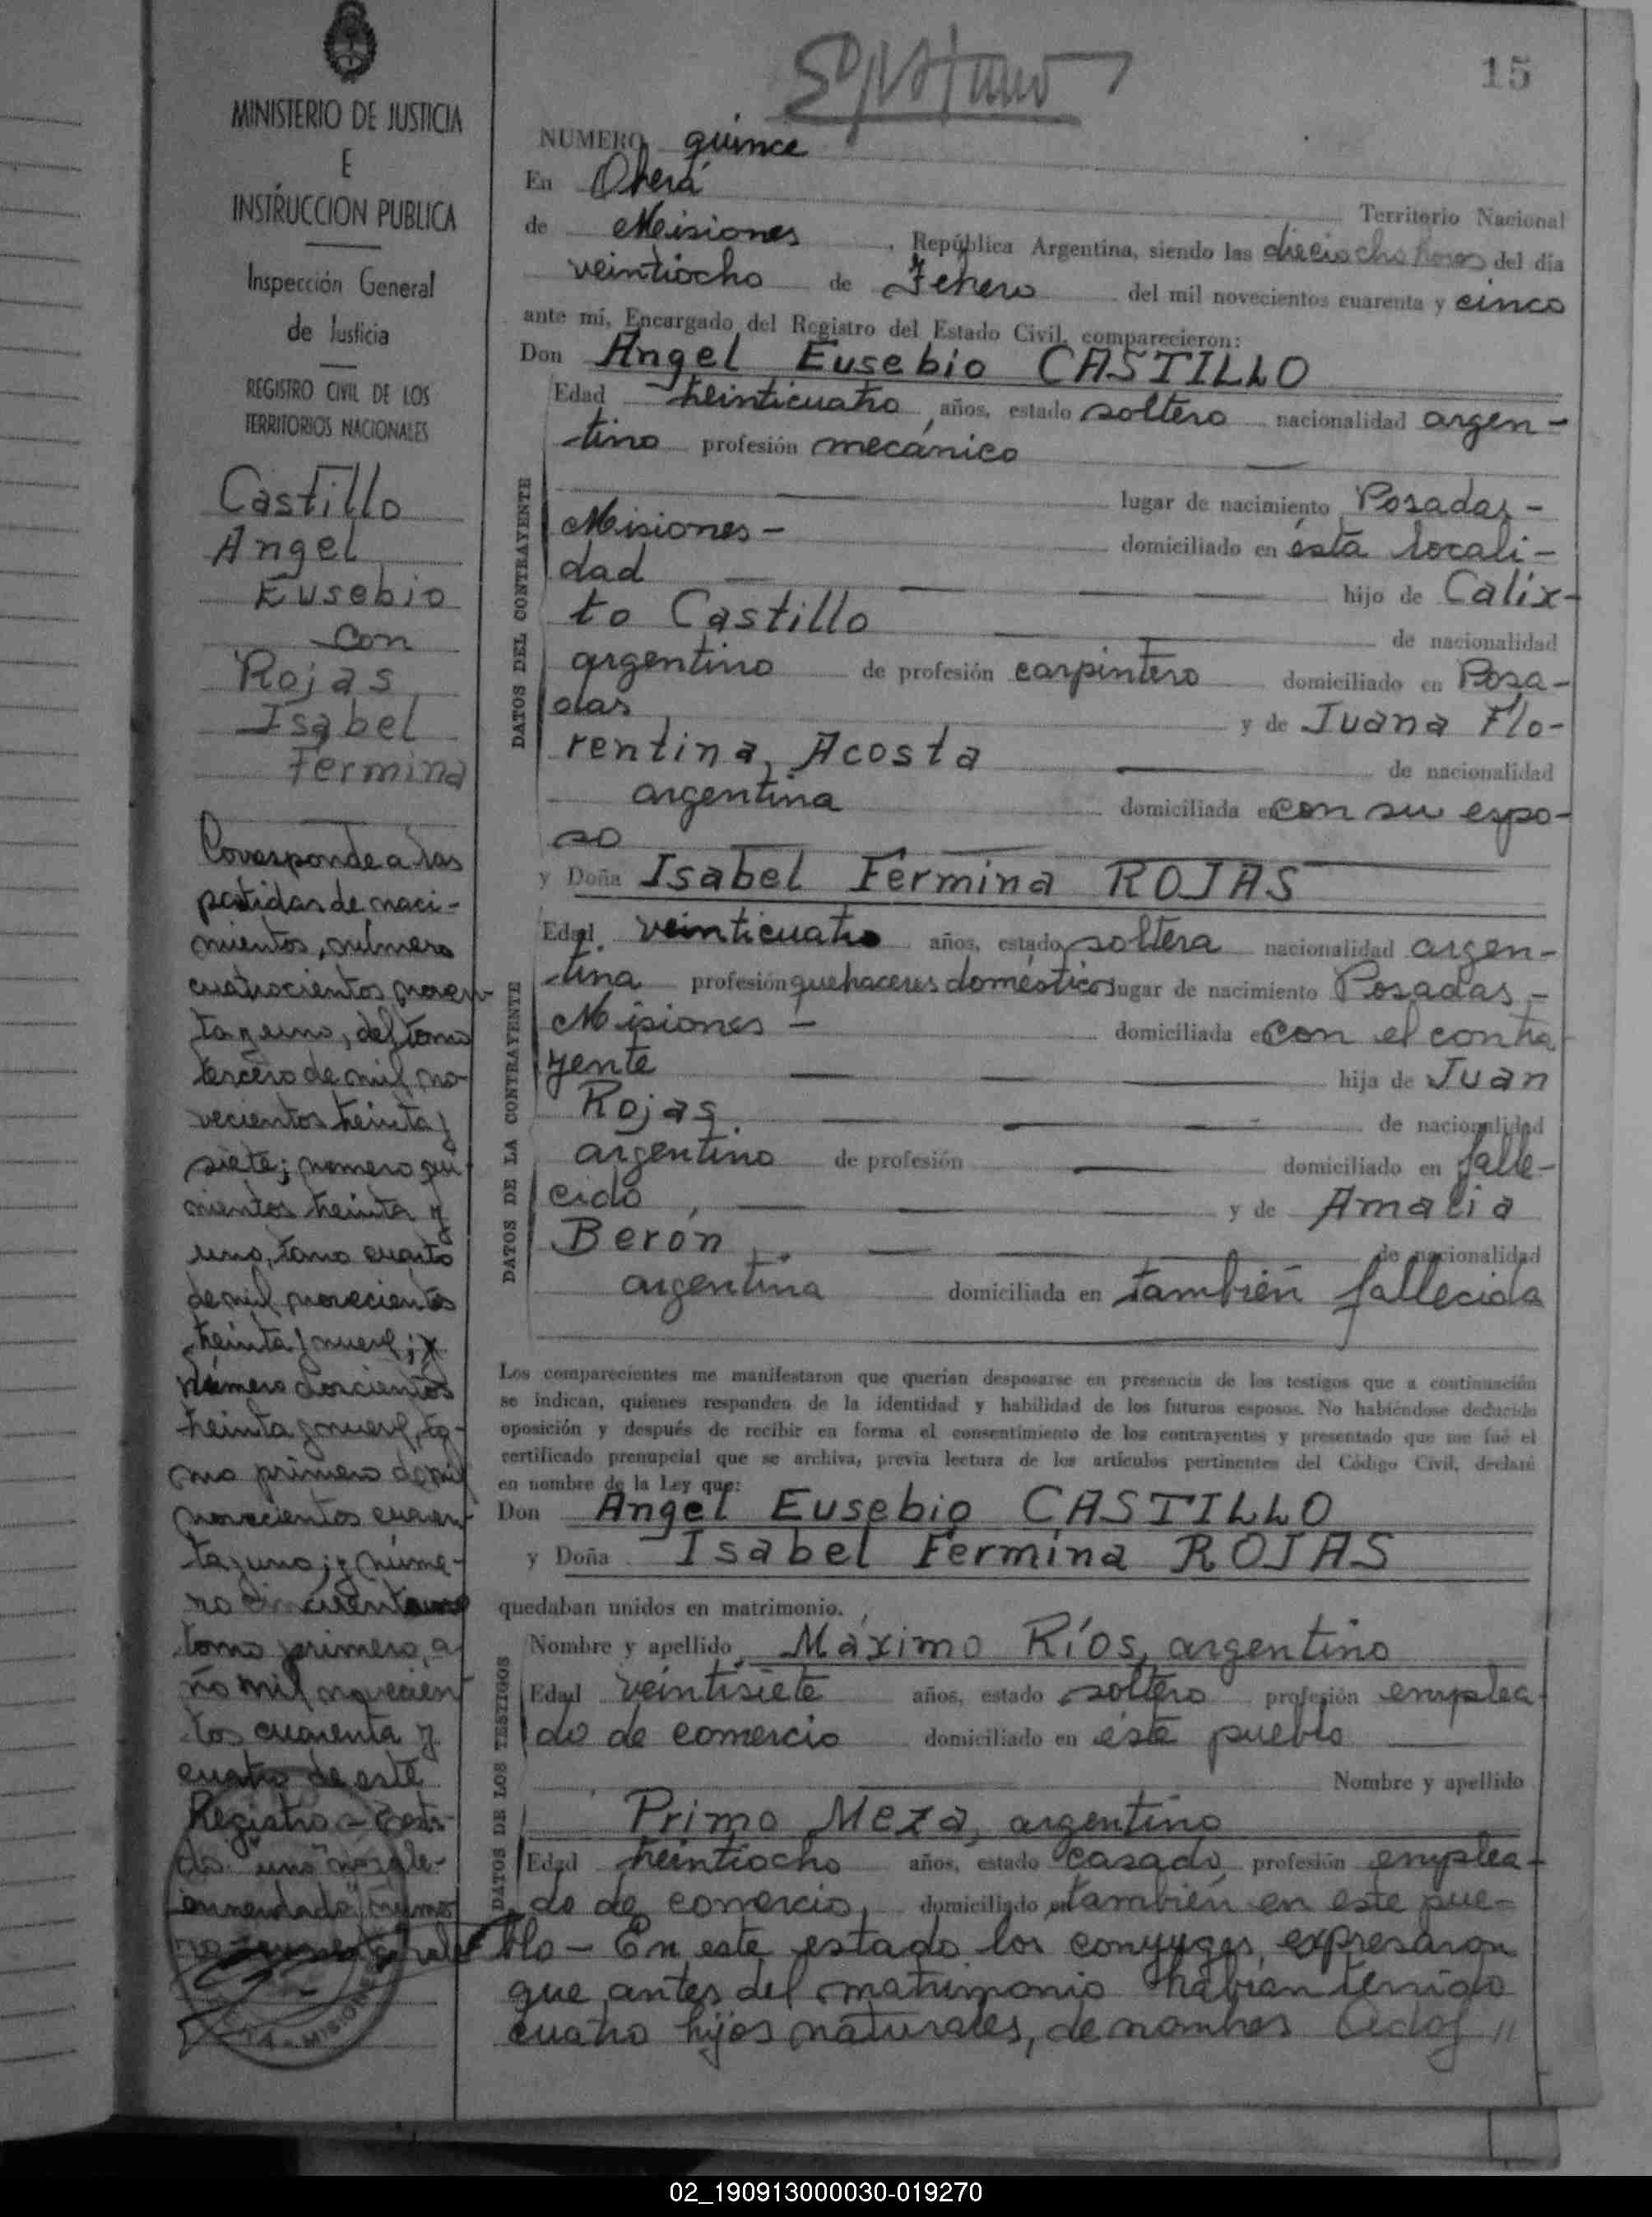 15
NUMERO quince
En Oberá
Territorio Nacional
de Misiones, República Argentina, siendo las dieciocho horas del día
veintiocho de Febrero del mil novecientos cuarenta y cinco
ante mí, Encargado del Registro del Estado Civil, comparecieron:
Don Angel Eusebio CASTILLO
DATOS DEL CONTRAYENTE
Edad treinticuatro años, estado soltero nacionalidad argen-
tino profesión mecánico
lugar de nacimiento Posadas-
Misiones- domiciliado en ésta locali-
dad hijo de Calix-
to Castillo de nacionalidad
argentino de profesión carpintero domiciliado en Posa-
das y de Juana Flo-
rentina, Acosta de nacionalidad
argentina domiciliada en con su espo-
so
y Doña Isabel Fermina ROJAS
DATOS DE LA CONTRAYENTE
Edad veinticuatro años, estado soltera nacionalidad argen-
tina profesión quehaceres domésticos lugar de nacimiento Posadas,-
Misiones- domiciliada en con el contra
yente hija de Juan
Rojas de nacionalidad
argentino de profesión domiciliado en falle-
cido, y de Amalia
Berón de nacionalidad
argentina domiciliada en también fallecida
Los comparecientes me manifestaron que querían desposarse en presencia de los testigos que a continuación
se indican, quienes responden de la identidad y habilidad de los futuros esposos. No habiéndose deducido
oposición y después de recibir en forma el consentimiento de los contrayentes y presentado que me fué el
certificado prenupcial que se archiva, previa lectura de los artículos pertinentes del Código Civil, declaré
en nombre de la Ley que:
Don Angel Eusebio CASTILLO
y Doña Isabel Fermina ROJAS
quedaban unidos en matrimonio.
DATOS DE LOS TESTIGOS
Nombre y apellido Máximo Ríos, argentino
Edad veintisiete años, estado soltero profesión emplea-
do de comercio domiciliado en éste pueblo
Nombre y apellido
Primo Meza, argentino
Edad treintiocho años, estado casado profesión emplea-
do de comercio, domiciliado en también en este pue-
blo- En este estado los conyuges, expresaron
que antes del matrimonio habían tenido
cuatro hijos naturales, de nombres Adol //
MINISTERIO DE JUSTICIA
E
INSTRUCCION PUBLICA
Inspección General
de Justicia
REGISTRO CIVIL DE LOS
TERRITORIOS NACIONALES
Castillo
Angel
Eusebio
con
Rojas
Isabel
Fermina
Corresponde a las
partidas de naci-
mientos, número
cuatrocientos noven-
ta y uno, del tomo
tercero de mil no-
vecientos treinta y
siete; número qui
nientos treinta y
uno, tomo cuarto
de mil novecientos
treinta y nueve; y
número doscientos
treinta y nueve, to-
mo primero de mil
novecientos cuaren-
ta y uno; y núme-
ro cincuenta
tomo primero, a
ño mil novecien
tos cuarenta y
cuatro de este
Registro-
02_190913000030-019270